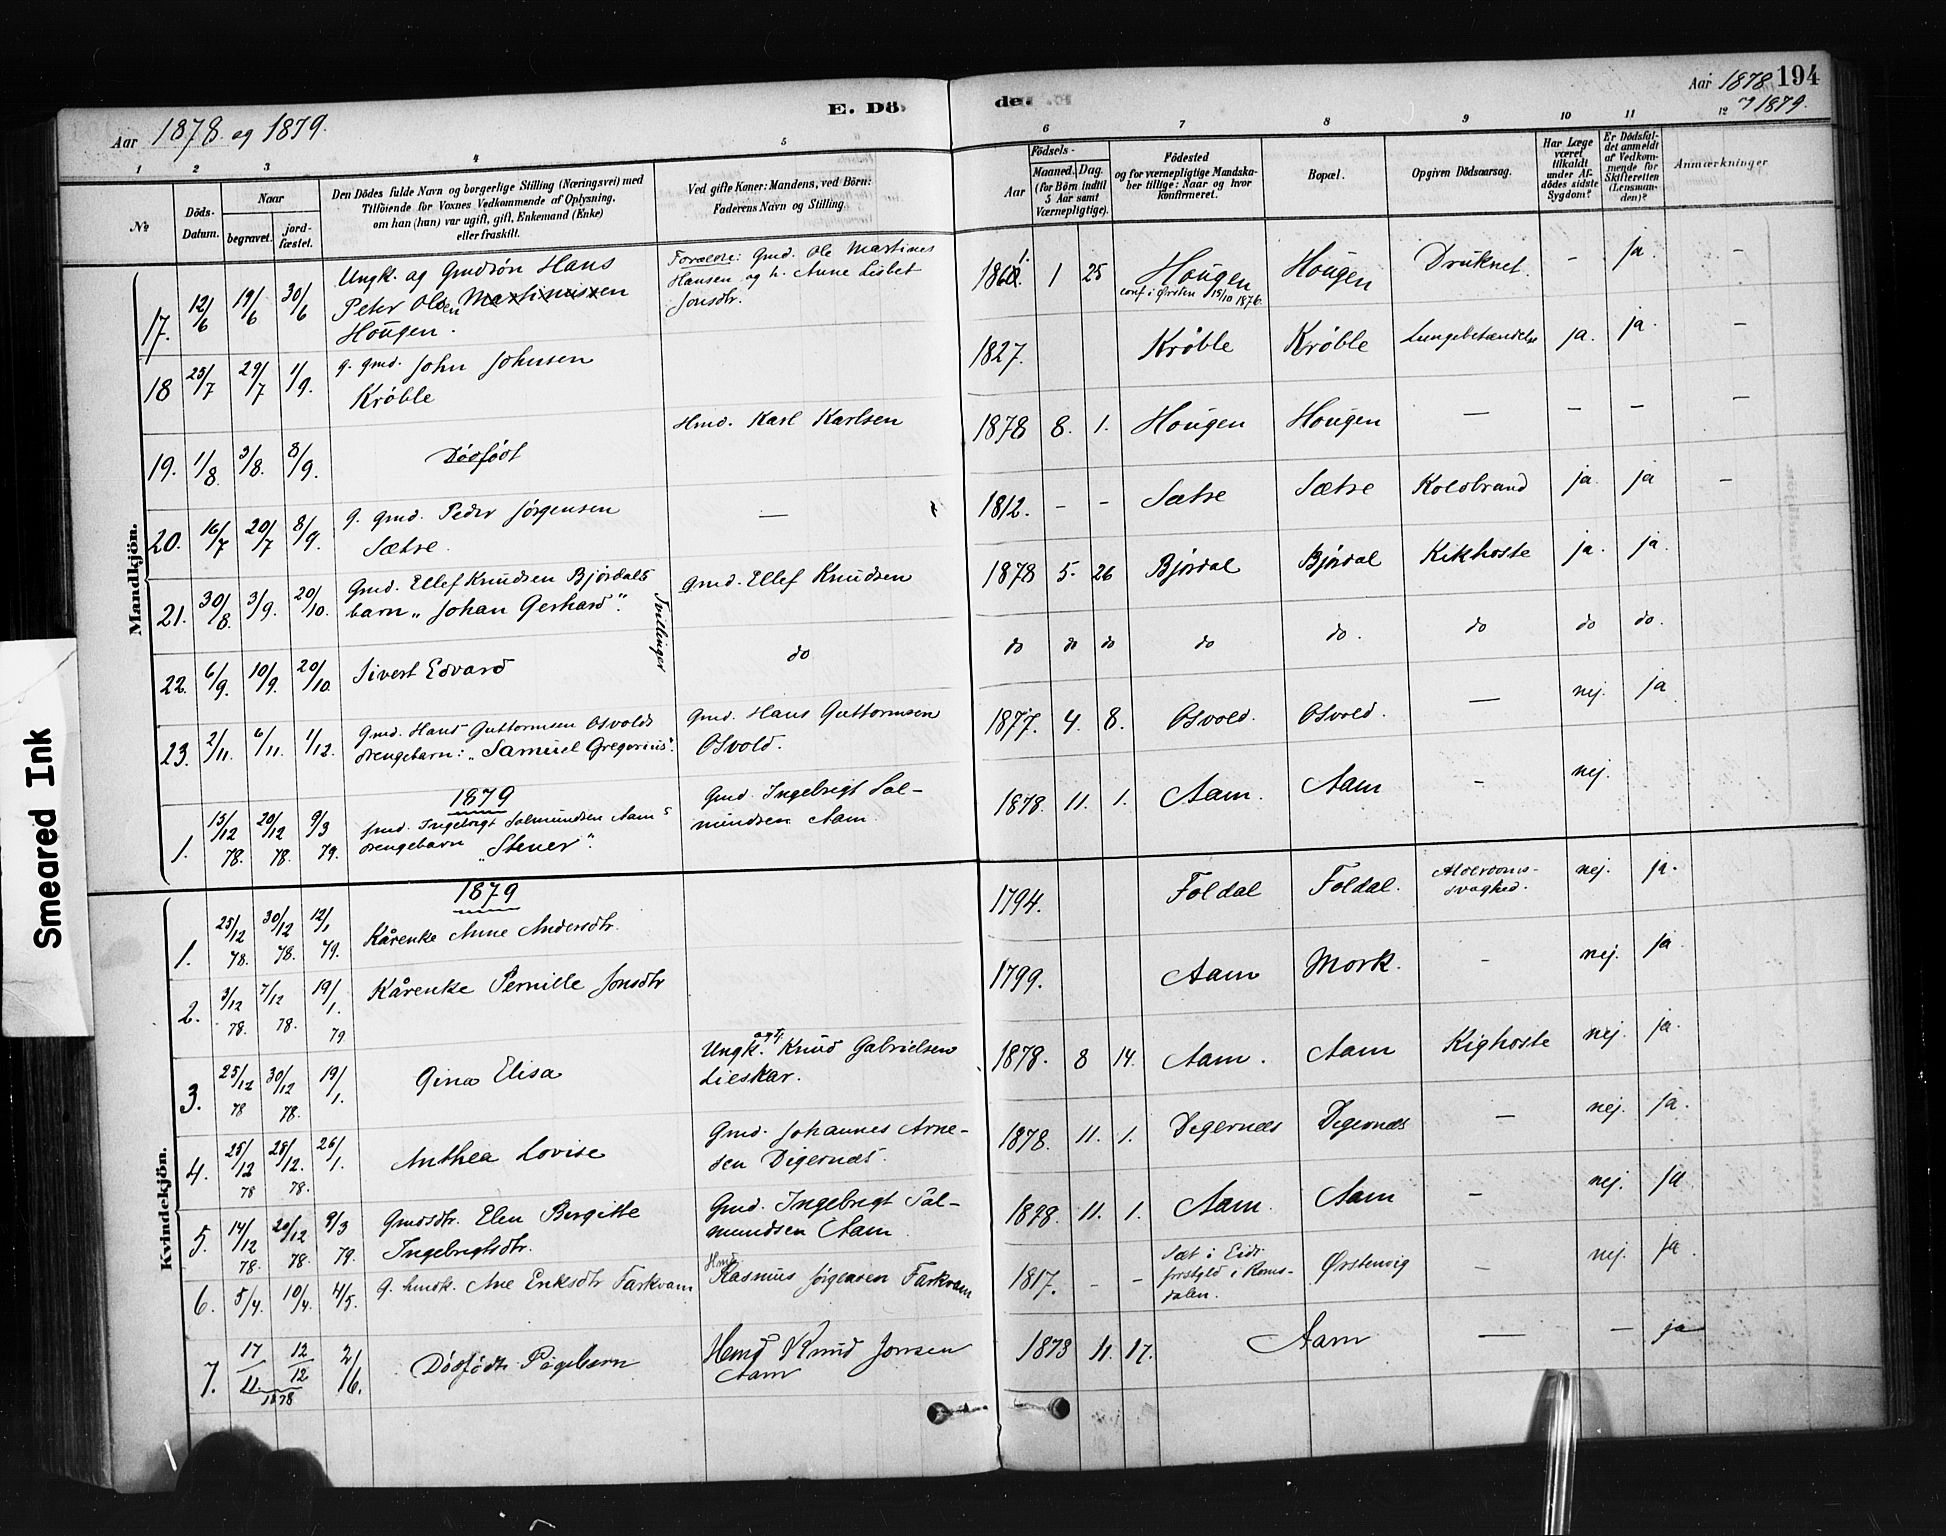 Aar 1878 og 1879.
E. Dö
de
Aar 1878 194
og 1879.
1 2 3 4 5 6 7 8 9 10 11 12
№
Döds-Datum.
Naar
begravet.
jord-fæstet.
Den Dödes fulde Navn og borgerlige Stilling (Næringsvei) med
Tilföiende for Voxnes Vedkommende af Oplysning,
om han (hun) var ugift, gift, Enkemand (Enke)
eller fraskilt.
Ved gifte Koner: Mandens, ved Börn:
Faderens Navn og Stilling.
Födsels-
Aar
Maaned. Dag.
(for Börn indtil
5 Aar samt
Værnepligtige).
Födested
og for værnepligtige Mandska-
ber tillige: Naar og hvor
konfirmeret.
Bopæl.
Opgiven Dödsaarsag.
Har Læge
været
tilkaldt
under Af-
dödes sidste
Sygdom?
Er Dödsfal-
det anmeldt
af Vedkom-
mende for
Skifteretten
(Lensman-
den)?
Anmærkninger
Mandkjön.
17. 12/6 19/6 30/6 Ungk. og Gmdsøn Hans
Peter Olsen Martinussen
Hougen.
Forældre: Gmd. Ole Martines
Hansen og h. Anne Lisbet
Jonsdtr.
1 25 Hougen
conf. i Ørsten 15/10 1876.
Hougen Druknet. - Ja. -
18 25/7 29/7 1/9. g. gmd. John Johnsen
Krøble
1827. Krøble Krøble Lungebetændelse ja. ja. -
19. 1/8. 3/8. 8/9. Dødfødt
Hmd. Karl Karlsen
1878 8. 1. Hougen Hougen - - - -
20. 16/7 20/7 8/9. g. gmd. Peder Jørgensen
Sætre.
-
1812. - - Sætre Sætre Koldbrand ja. ja -
21. 30/8. 3/9. 20/10. Gmd. Ellef Knudsen Bjørdals
barn "Johan Gerhard".
Tvillinger
Gmd. Ellef Knudsen
1878 5. 26 Bjørdal Bjørdal Kikhoste ja. ja.
22. 6/9. 10/9. 20/10. Sivert Edvard
do
do do do do do. do do do.
23. 2/11. 6/11. 1/12. Gmd. Hans Guttormsen Osvolds
drengebarn: "Samuel Gregorius".
Gmd. Hans Guttormsen
Osvold.
1877. 4. 8. Osvold. Osvold. - nej. ja
1879
1. 15/12 78. 20/12 78. 9/3 79. Gmd. Ingebrigt Salmundsen Aams
drengebarn "Stener".
Gmd. Ingebrigt Sal-
mundsen Aam.
1878. 11. 1. Aam. Aam - nej.
Kvindekjön.
1879
1. 25/12 78. 30/12 78. 12/1 79. Kårenke Anne Andersdtr.
1794. Foldal Foldal. Alderdoms-
svaghed. nej. ja.
2. 3/12 78. 7/12 78. 19/1. 79 Kårenke Pernille Jonsdtr
1799. Aam Mork. - nej. ja.
3. 25/12 78 30/12 78. 19/1. Gina Elisa
Ungk. Knud Gabrielsen
Lieskar.
1878. 8 14. Aam. Aam Kighoste nej. ja.
4. 25/12 78 28/12. 78. 26/1. Anthea Lovise
Gmd. Johannes Arne-
sen Digernæs.
1878. 11. 1. Degernæs Degernæs - nej. ja.
5. 14/12 78. 20/12 78. 9/3 79. Gmdsdtr. Elen Birgitte
Ingebrigtsdtr.
Gmd. Ingebrigt Sal-
mundsen Aam.
1878. 11. 1. Aam. Aam - nej. ja
6. 5/4. 10/4. 4/5. g. hmdk. Ane Eriksdtr Farkvam
Hmd
Rasmus Jørgensen Farkvam
1817. - - Sæt i Eids
præstgld i Roms-
dalen.
Ørstenvig - nej. ja.
7. 17/11 12/12 1878 2/6. Dødfødt Pigebarn
Hmd Knud Jonsen
Aam
1878 11. 17. Aam - - ja
Smeared Ink